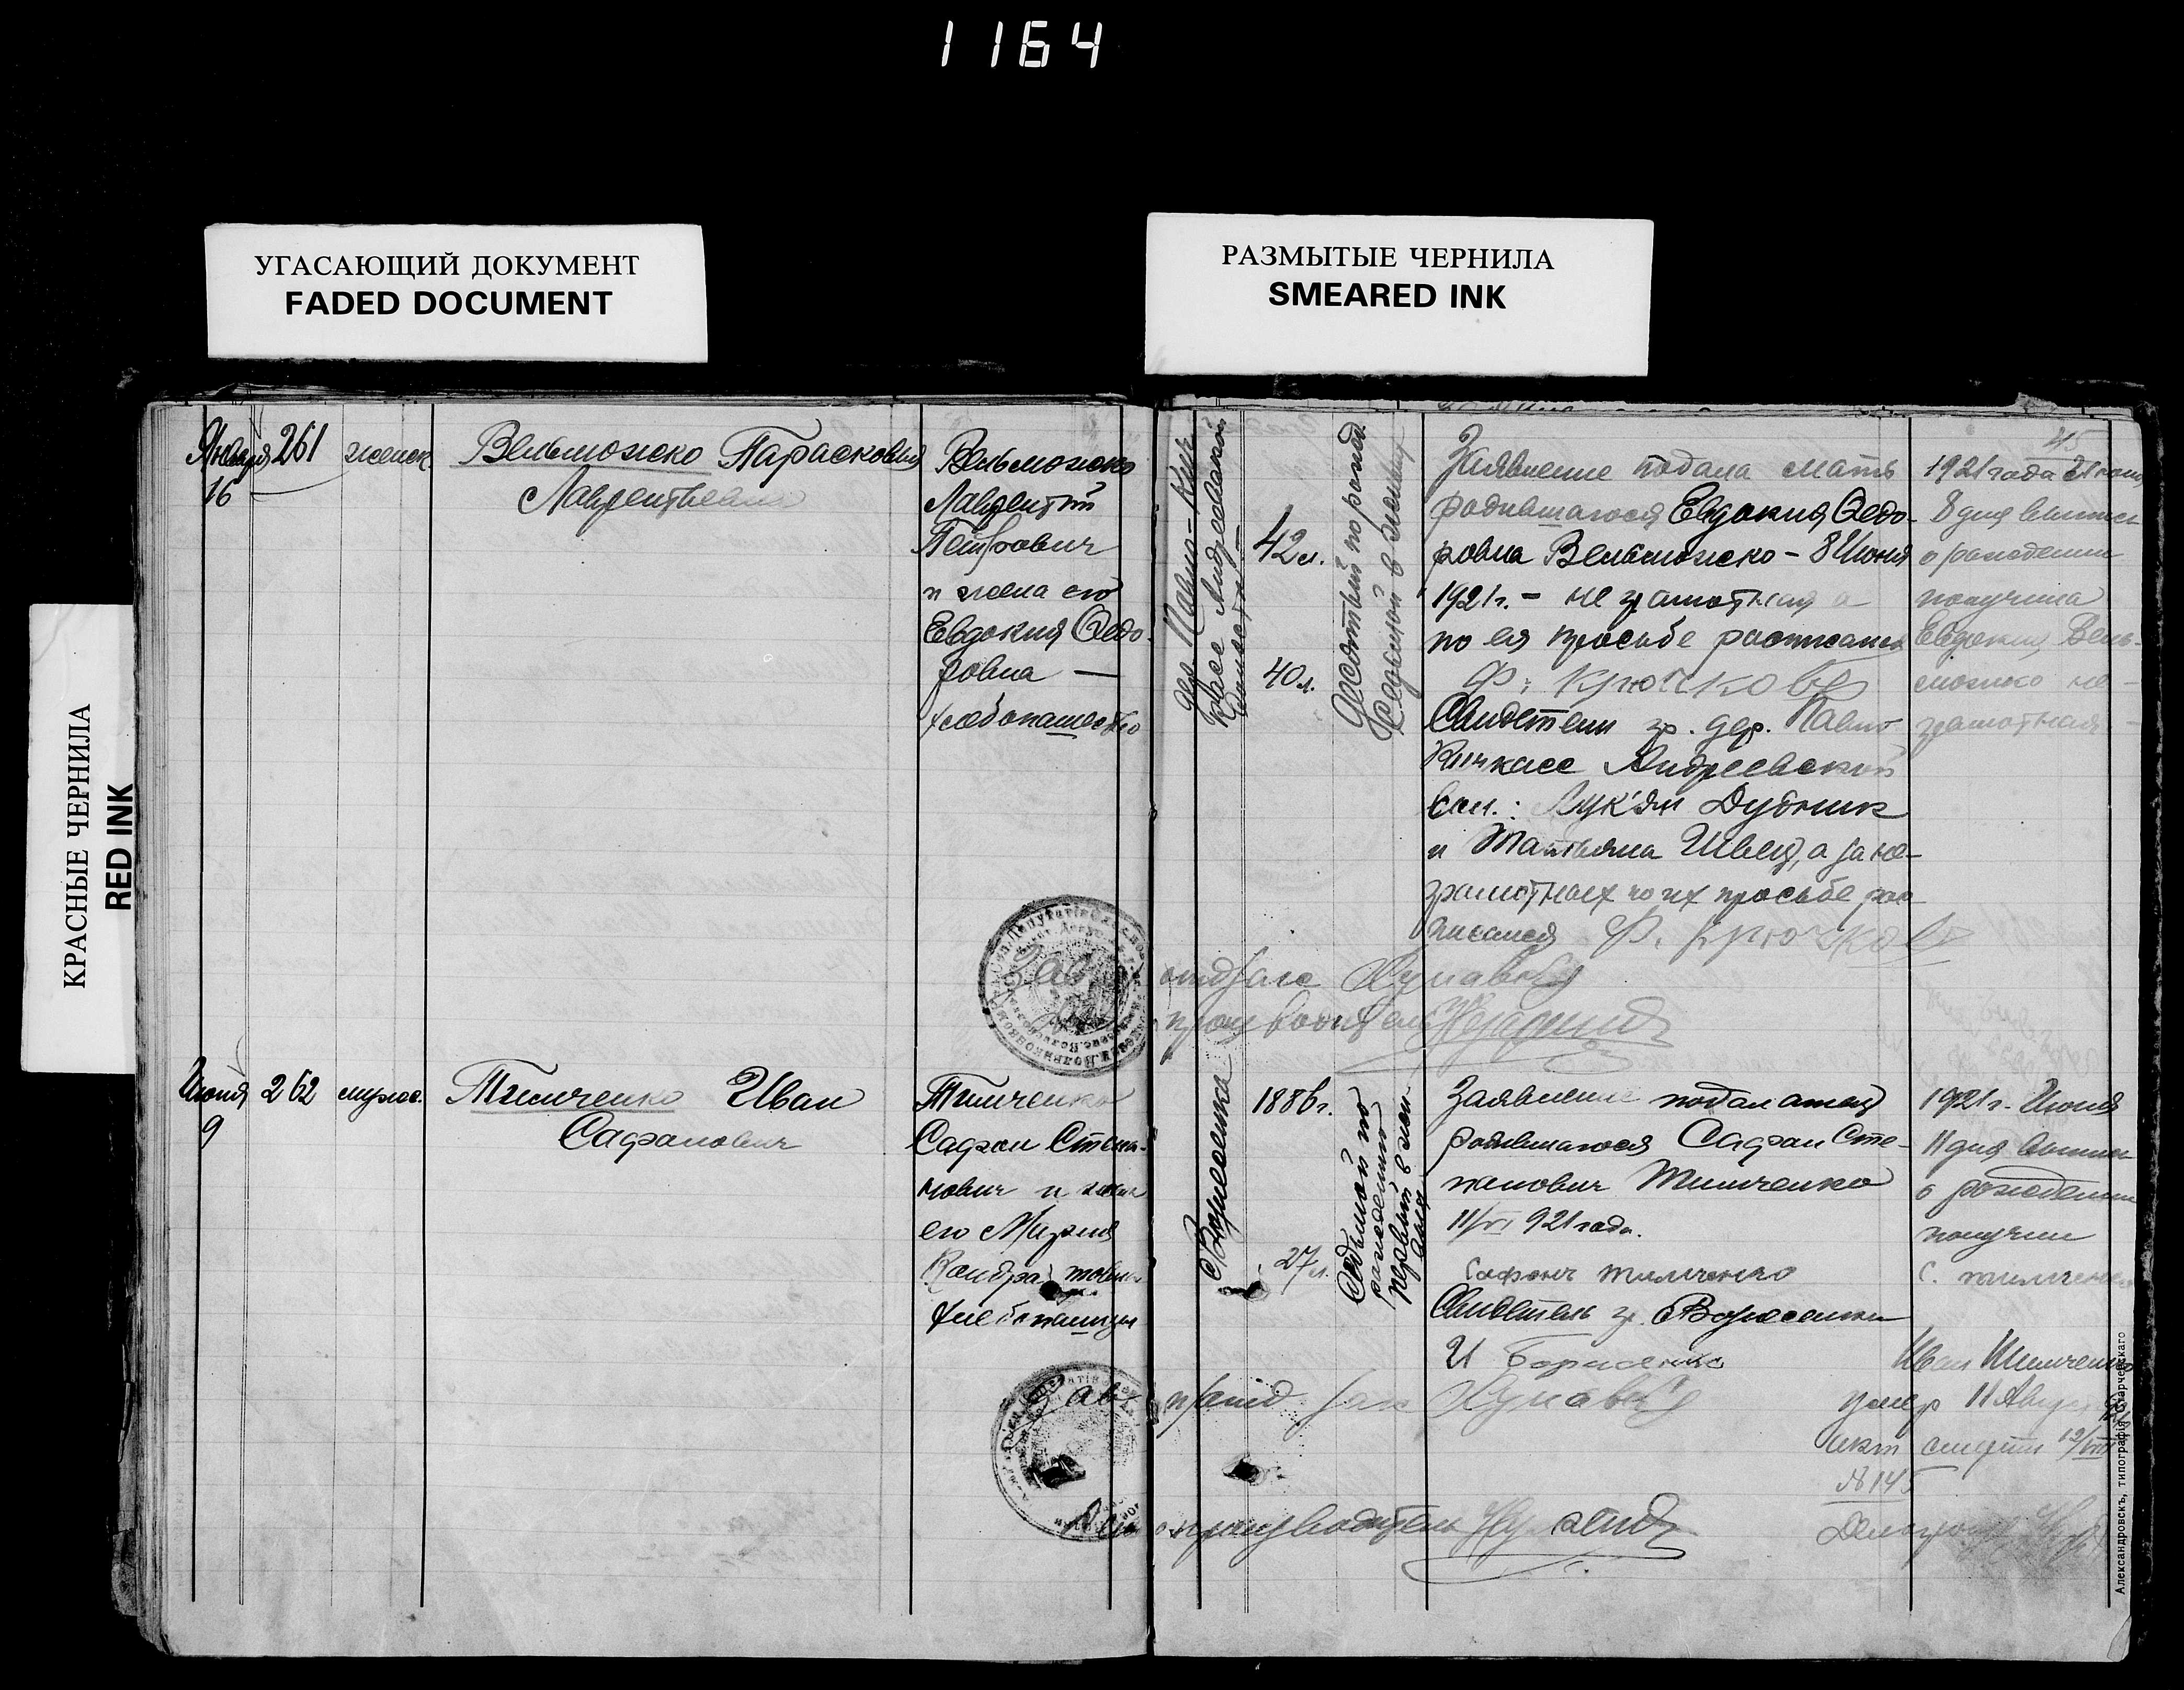 1164
УГАСАЮЩИЙ ДОКУМЕНТ
FADED DOCUMENT
РАЗМЫТЫЕ ЧЕРНИЛА
SMEARED INK
КРАСНЫЕ ЧЕРНИЛА
RED INK
Января 261 женск
16
Вельможко Парасковия
Лаврентьевна
Вельможко
Лаврентий
Петрович
и жена его
Евдокия Федо-
ровна —
хлебопашество
дер. Павло-Кич-
касс Андреевской
волости —
42 л.
40 л.
Десятый по рожд.
Заявление подала мать
родившагося Евдокия Федо-
ровна Вельможко - 8 Июня
1921 г. - не грамотная а
по ея просьбе расписался
Ф. Крючков
Свидетели гр. дер. Павло
Кичкасс Андреевской
вол.: Лук'ян Дубник
и Татьяна Швец, а за не-
грамотных по их просьбе рас
писался Ф. Крючков
45
1921 года Июня
8 дня выпись
о рождении
получила
Евдокия Вель-
можко не-
грамотная -
Зав.
отд. загс
производитель
Июня 262 мужс.
9
Тимченко Иван
Сафонович
Тимченко
Сафон Степа-
нович и жена
его Мария
Кондратовна
хлебопашцы
с Вознесенка
1886 г.
27 л.
Седьмой по
рождению
первый в
Заявление подал отец
родившагося Сафон Сте-
панович Тимченко
11/VI 921 года.
Сафонъ Тимченко
Свидетель гр. с Вознесенки
И Борисенко
1921 г. Июня
11 дня выпись
о рождении
получил
С. Тимченко
Иван Тимченко
умер 11 Августа
акт смерти 12/VIII
№ 145
Зав.
Делопроизводитель
Александровскъ, типографія